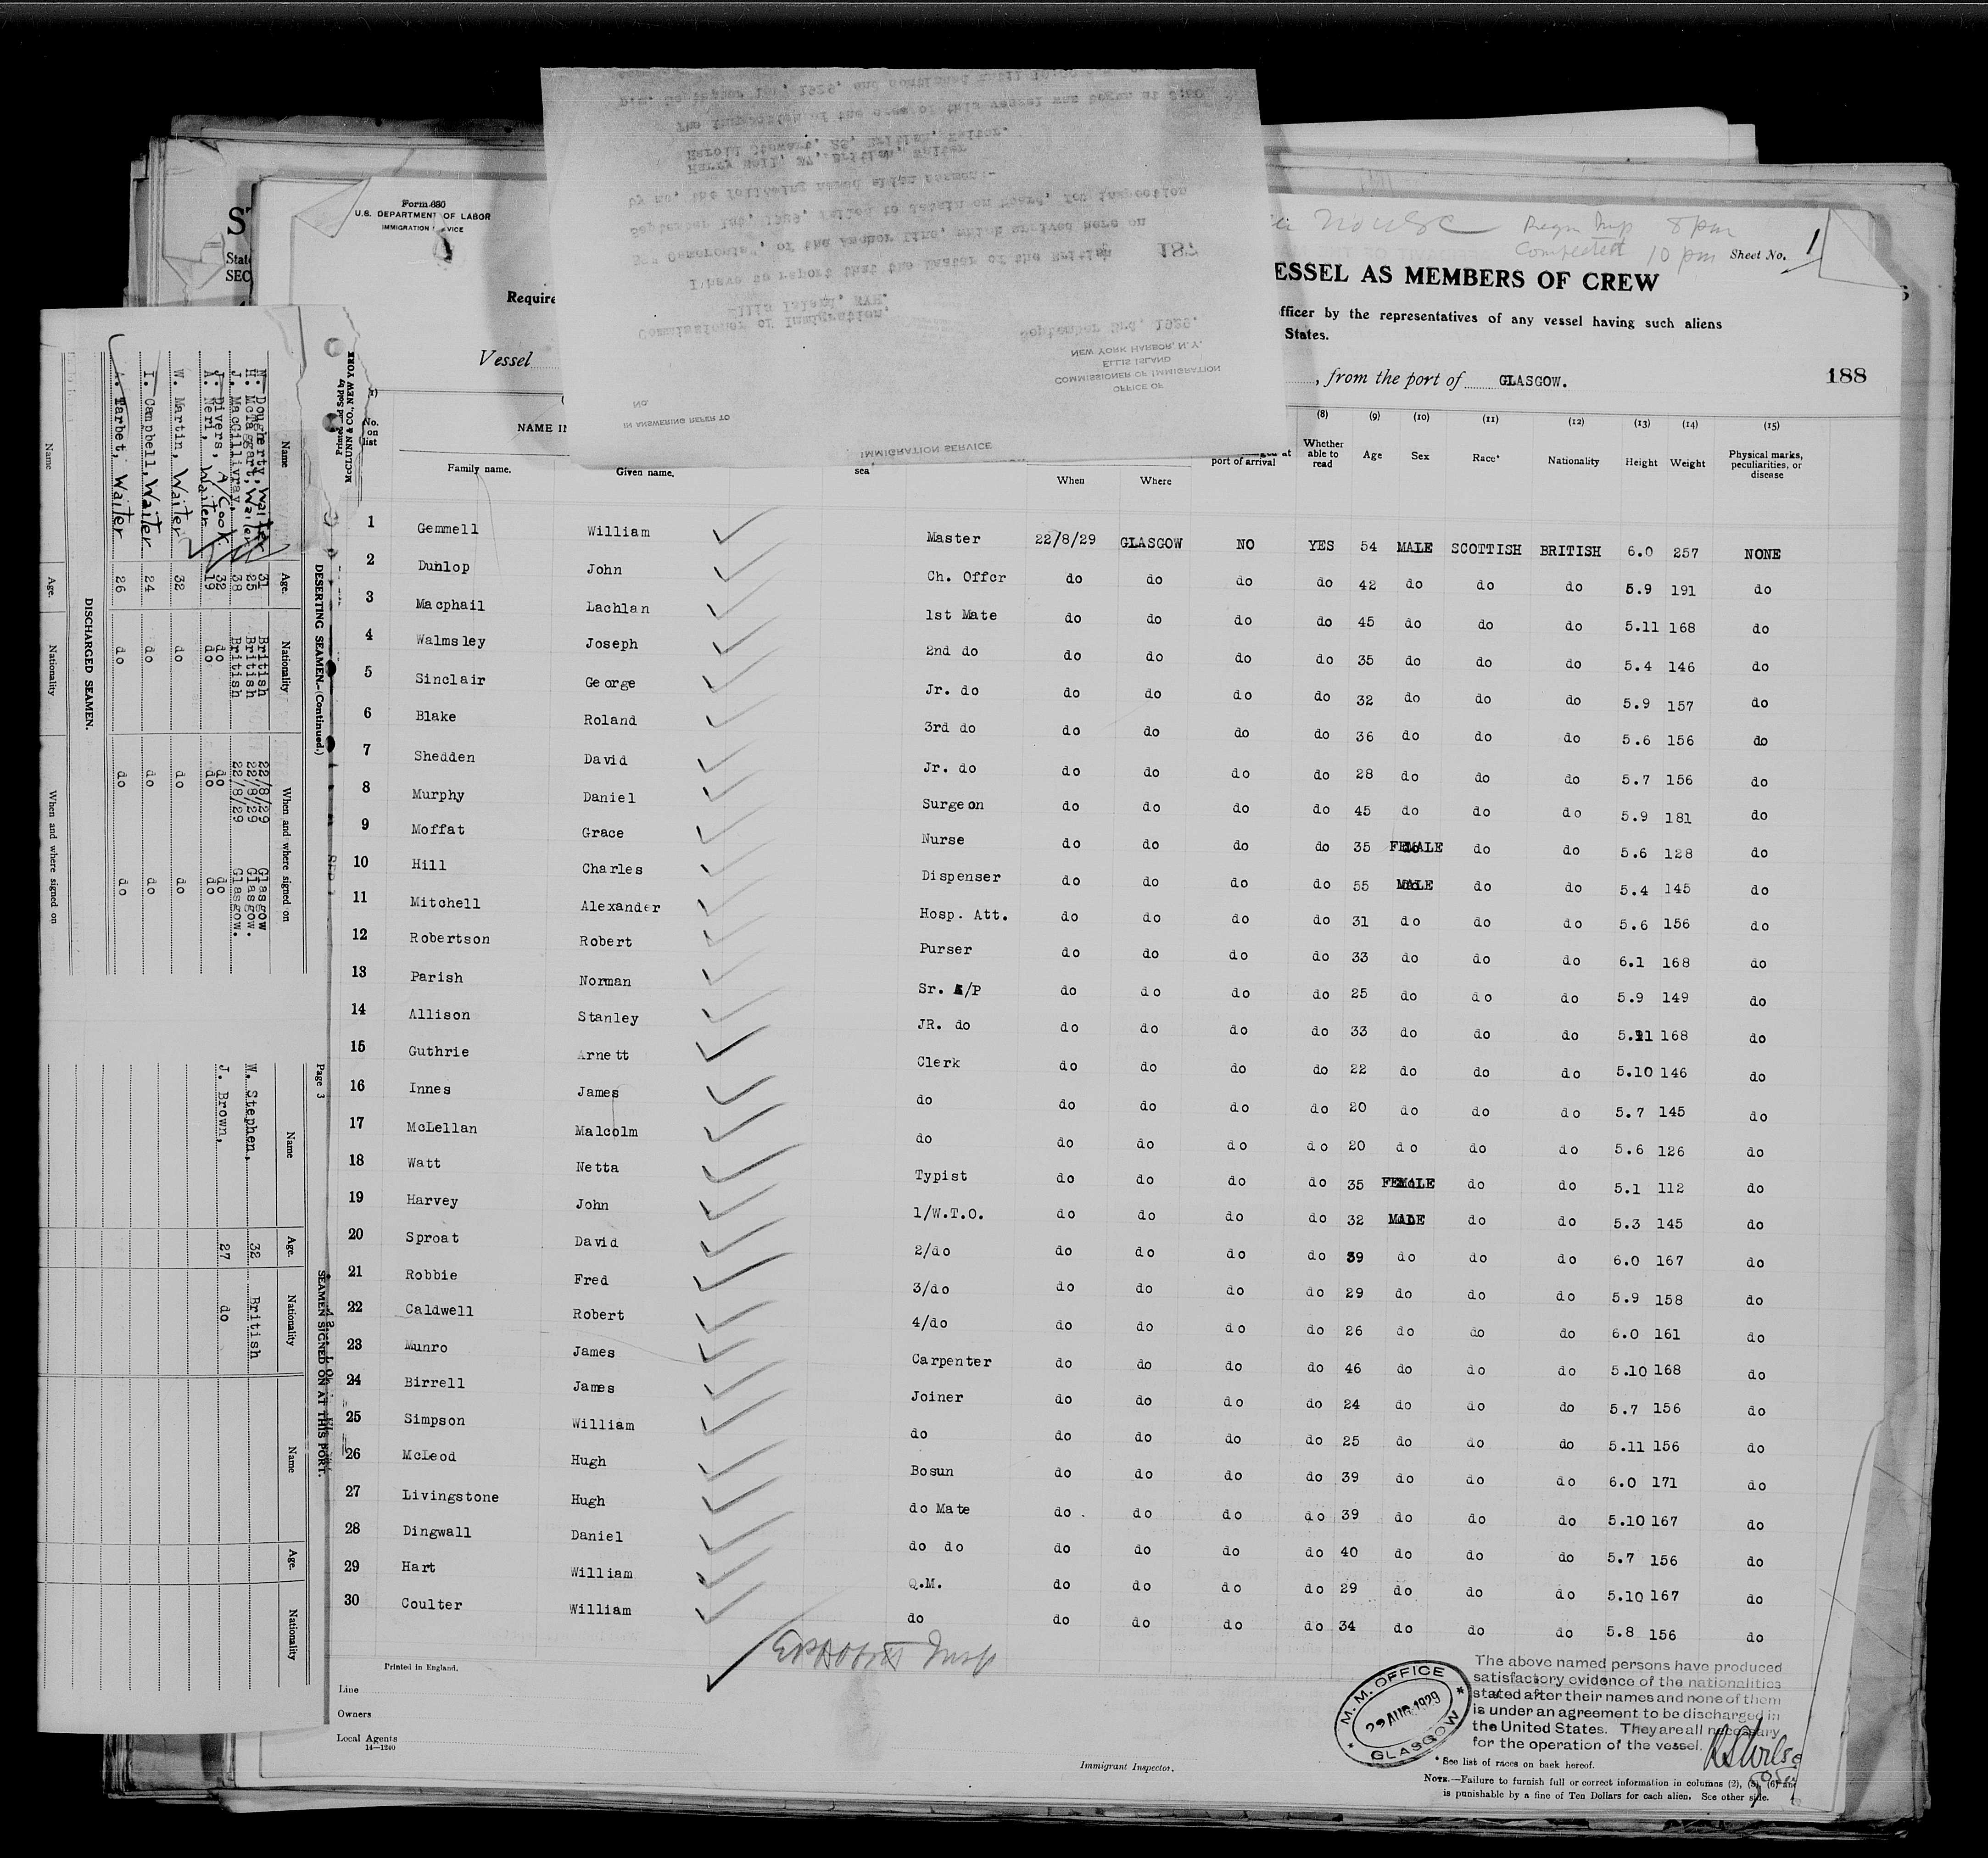 Form 680
U.S. DEPARTMENT OF LABOR
IMMIGRATION
Begn Insp 8 pm
Completed 10 pm
Sheet No. 1
ESSEL AS MEMBERS OF CREW
Require
officer by the representatives of any vessel having such aliens
States.
Vessel
, from the port of GLASGOW.
188
IMMIGRATION SERVICE
IN ANSWERING REFER TO
No.
OFFICE OF
COMMISSIONER OF IMMIGRATION
ELLIS ISLAND
NEW YORK HARBOR, N. Y.
September 3rd, 1929.
Commissioner of Immigration,
Ellis Island, NYH.
187
I have to report that the Master of the British
of the Anchor Line, which arrived here on
September 1st, 1929, failed to detain on board, for inspection
by me, the following named alien seamen:-
Harry Neil, 37, British, Waiter
Harold Stewart, 25, British, Waiter.
The inspection of the crew of this vessel was begun at 8:00
p.m. September 1st, 1929, and continued until 10:00
(8) (9) (10) (11) (12) (13) (14) (15)
No. on list
NAME IN
Family name. Given name. sea When Where port of arrival Whether able to read Age Sex Race* Nationality Height Weight Physical marks, peculiarities, or disease
1 Gemmell William Master 22/8/29 GLASGOW NO YES 54 MALE SCOTTISH BRITISH 6.0 257 NONE
2 Dunlop John Ch. Offcr do do do do 42 do do do 5.9 191 do
3 Macphail Lachlan 1st Mate do do do do 45 do do do 5.11 168 do
4 Walmsley Joseph 2nd do do do do do 35 do do do 5.4 146 do
5 Sinclair George Jr. do do do do do 32 do do do 5.9 157 do
6 Blake Roland 3rd do do do do do 36 do do do 5.6 156 do
7 Shedden David Jr. do do do do do 28 do do do 5.7 156 do
8 Murphy Daniel Surgeon do do do do 45 do do do 5.9 181 do
9 Moffat Grace Nurse do do do do 35 FEMALE do do 5.6 128 do
10 Hill Charles Dispenser do do do do 55 MALE do do 5.4 145 do
11 Mitchell Alexander Hosp. Att. do do do do 31 do do do 5.6 156 do
12 Robertson Robert Purser do do do do 33 do do do 6.1 168 do
13 Parish Norman Sr. A/P do do do do 25 do do do 5.9 149 do
14 Allison Stanley JR. do do do do do 33 do do do 5.11 168 do
15 Guthrie Arnett Clerk do do do do 22 do do do 5.10 146 do
16 Innes James do do do do do 20 do do do 5.7 145 do
17 McLellan Malcolm do do do do do 20 do do do 5.6 126 do
18 Watt Netta Typist do do do do 35 FEMALE do do 5.1 112 do
19 Harvey John 1/W.T.O. do do do do 32 MALE do do 5.3 145 do
20 Sproat David 2/do do do do do 39 do do do 6.0 167 do
21 Robbie Fred 3/do do do do do 29 do do do 5.9 158 do
22 Caldwell Robert 4/do do do do do 26 do do do 6.0 161 do
23 Munro James Carpenter do do do do 46 do do do 5.10 168 do
24 Birrell James Joiner do do do do 24 do do do 5.7 156 do
25 Simpson William do do do do do 25 do do do 5.11 156 do
26 McLeod Hugh Bosun do do do do 39 do do do 6.0 171 do
27 Livingstone Hugh do Mate do do do do 39 do do do 5.10 167 do
28 Dingwall Daniel do do do do do do 40 do do do 5.7 156 do
29 Hart William Q.M. do do do do 29 do do do 5.10 167 do
30 Coulter William do do do do do 34 do do do 5.8 156 do
Insp
Printed in England.
Line
Owners
Local Agents
14—1240
Immigrant Inspector.
M. M. OFFICE
29 AUG 1929
GLASGOW
The above named persons have produced
satisfactory evidence of the nationalities
stated after their names and none of them
is under an agreement to be discharged in
the United States. They are all necessary
for the operation of the vessel.
* See list of races on back hereof.
NOTE.—Failure to furnish full or correct information in columns (2), (5), (6) and
is punishable by a fine of Ten Dollars for each alien. See other side.
Printed and Sold by
McCLUNN & CO., NEW YORK
DESERTING SEAMEN.—(Continued.)
Name Age. Nationality When and where signed on
N. Dougherty, Waiter 31 British 22/8/29 Glasgow
H. McTaggart, Waiter 25 British 22/8/29 Glasgow.
J. MacGillivray, 38 British 22/8/29 Glasgow.
J. Divers, A/Cook 32 do do do
A. Neri, Waiter 19 do do do
W. Martin, Waiter 32 do do do
I. Campbell, Waiter 24 do do do
A. Tarbet, Waiter 26 do do do
DISCHARGED SEAMEN.
Name Age. Nationality When and where signed on
Page 3
SEAMEN SIGNED ON AT THIS PORT.
Name Age. Nationality Name Age. Nationality
W. Stephen, 32 British
J. Brown, 27 do